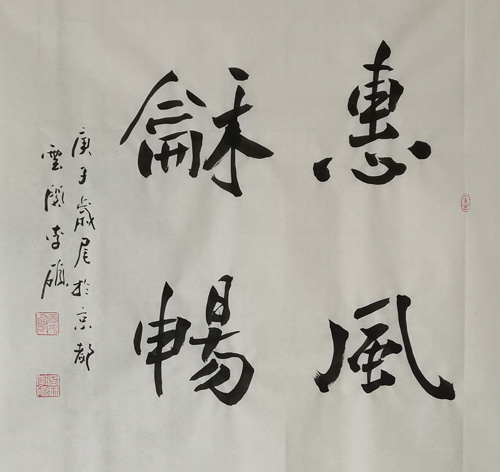 惠風
龢暢
庚子歲尾於京都
雲閣李碩